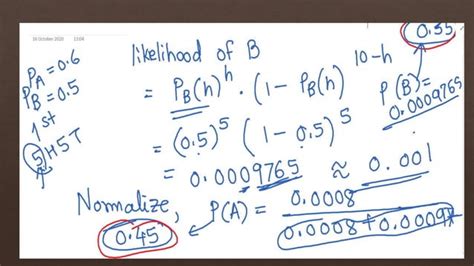 18 October 2020 13:04
P_A = 0.6
P_B = 0.5
1st
5H5T
likelihood of B
= P_B(h)^h · (1 - P_B(h))^10-h
= (0.5)^5 (1 - 0.5)^5
= 0.0009765 ≈ 0.001
0.55
P(B) =
0.0009765
Normalize,
0.45
P(A) = 0.0008
0.0008 + 0.0009